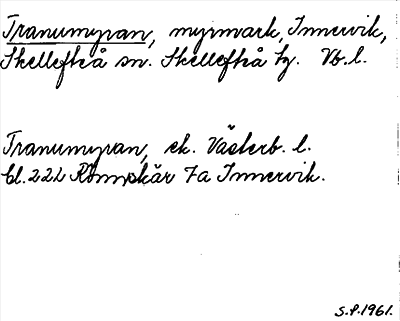 Tranumyran, myrmark, Innervik,
Skellefteå sn. Skellefteå tg. Vb.l.
Tranumyran, ek. Västerb. l.
bl. 22L Rönnskär 7a Innervik.
S.P. 1961.